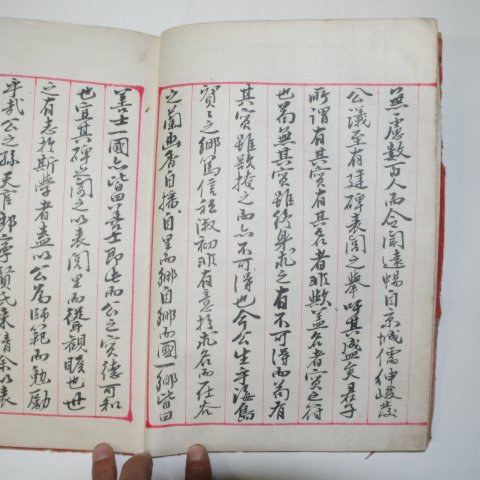 無慮數百人而令聞遠暢自京城儒紳峻發
公議至有竪碑表閭之擧吁其盛矣君子
所謂有其實有其名者非歟蓋名者實之符
也苟無其實雖終身求之有不可得而苟有
其實雖欲掩之而亦不可得也今公生乎海島
之鄕篤信私淑初非有意於求名而在谷
之蘭幽香自播自里而鄕自鄕而國一鄕皆曰
善士一國亦皆曰善士即此而公之實德可知
也宜其碑之閭之以表閭里而聳觀瞻也世
之有志於斯學者盍以公爲師範而勉勵
乎哉公之孫天賢氏來請余以表